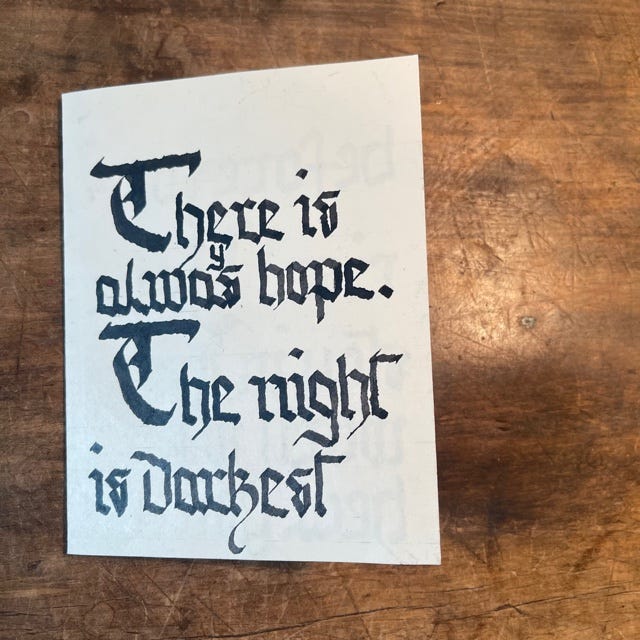 There is
always hope.
The night
is darkest